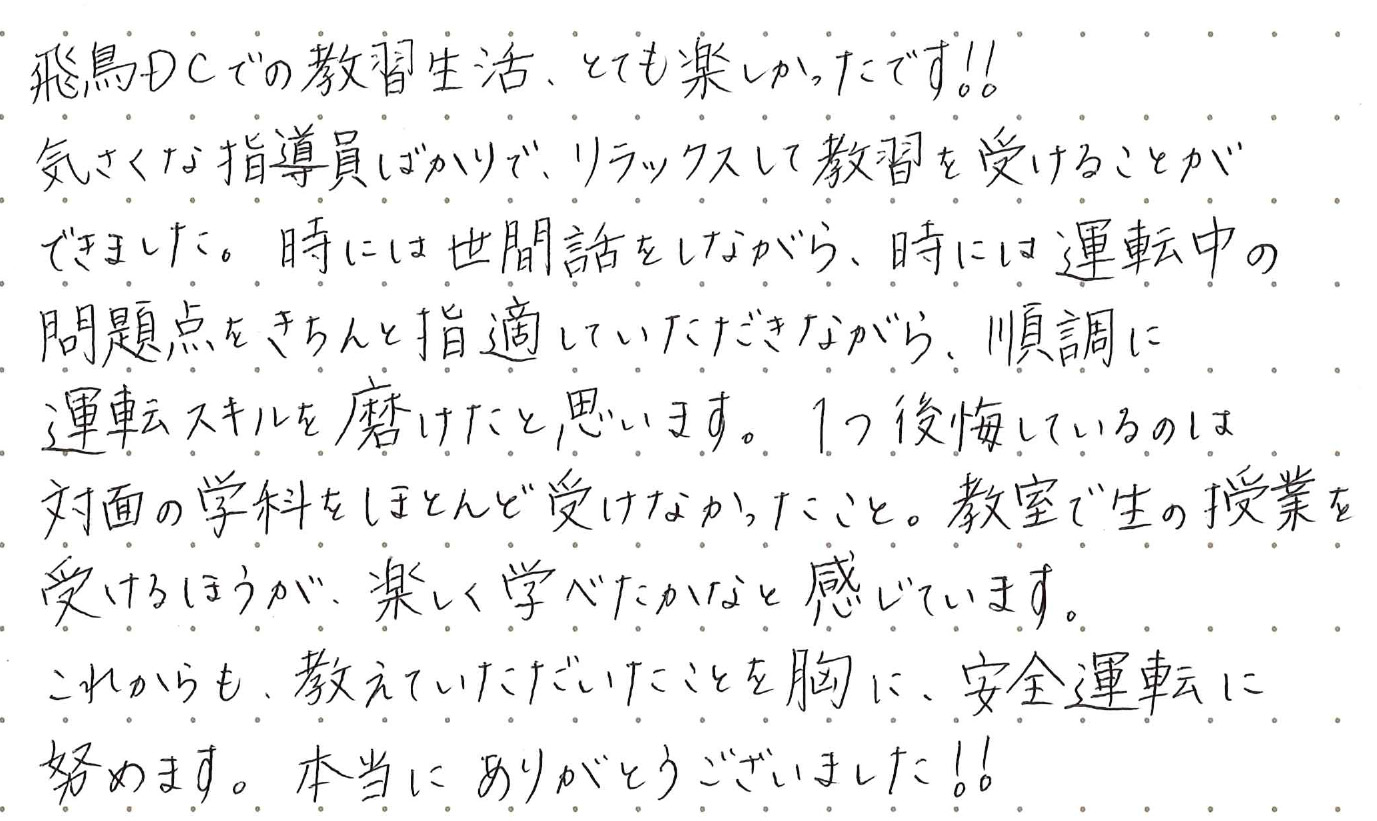 飛鳥DCでの教習生活、とても楽しかったです!!
気さくな指導員ばかりで、リラックスして教習を受けることが
できました。時には世間話をしながら、時には運転中の
問題点をきちんと指適していただきながら、順調に
運転スキルを磨けたと思います。1つ後悔しているのは
対面の学科をほとんど受けなかったこと。教室で生の授業を
受けるほうが、楽しく学べたかなと感じています。
これからも、教えていただいたことを胸に、安全運転に
努めます。本当にありがとうございました!!